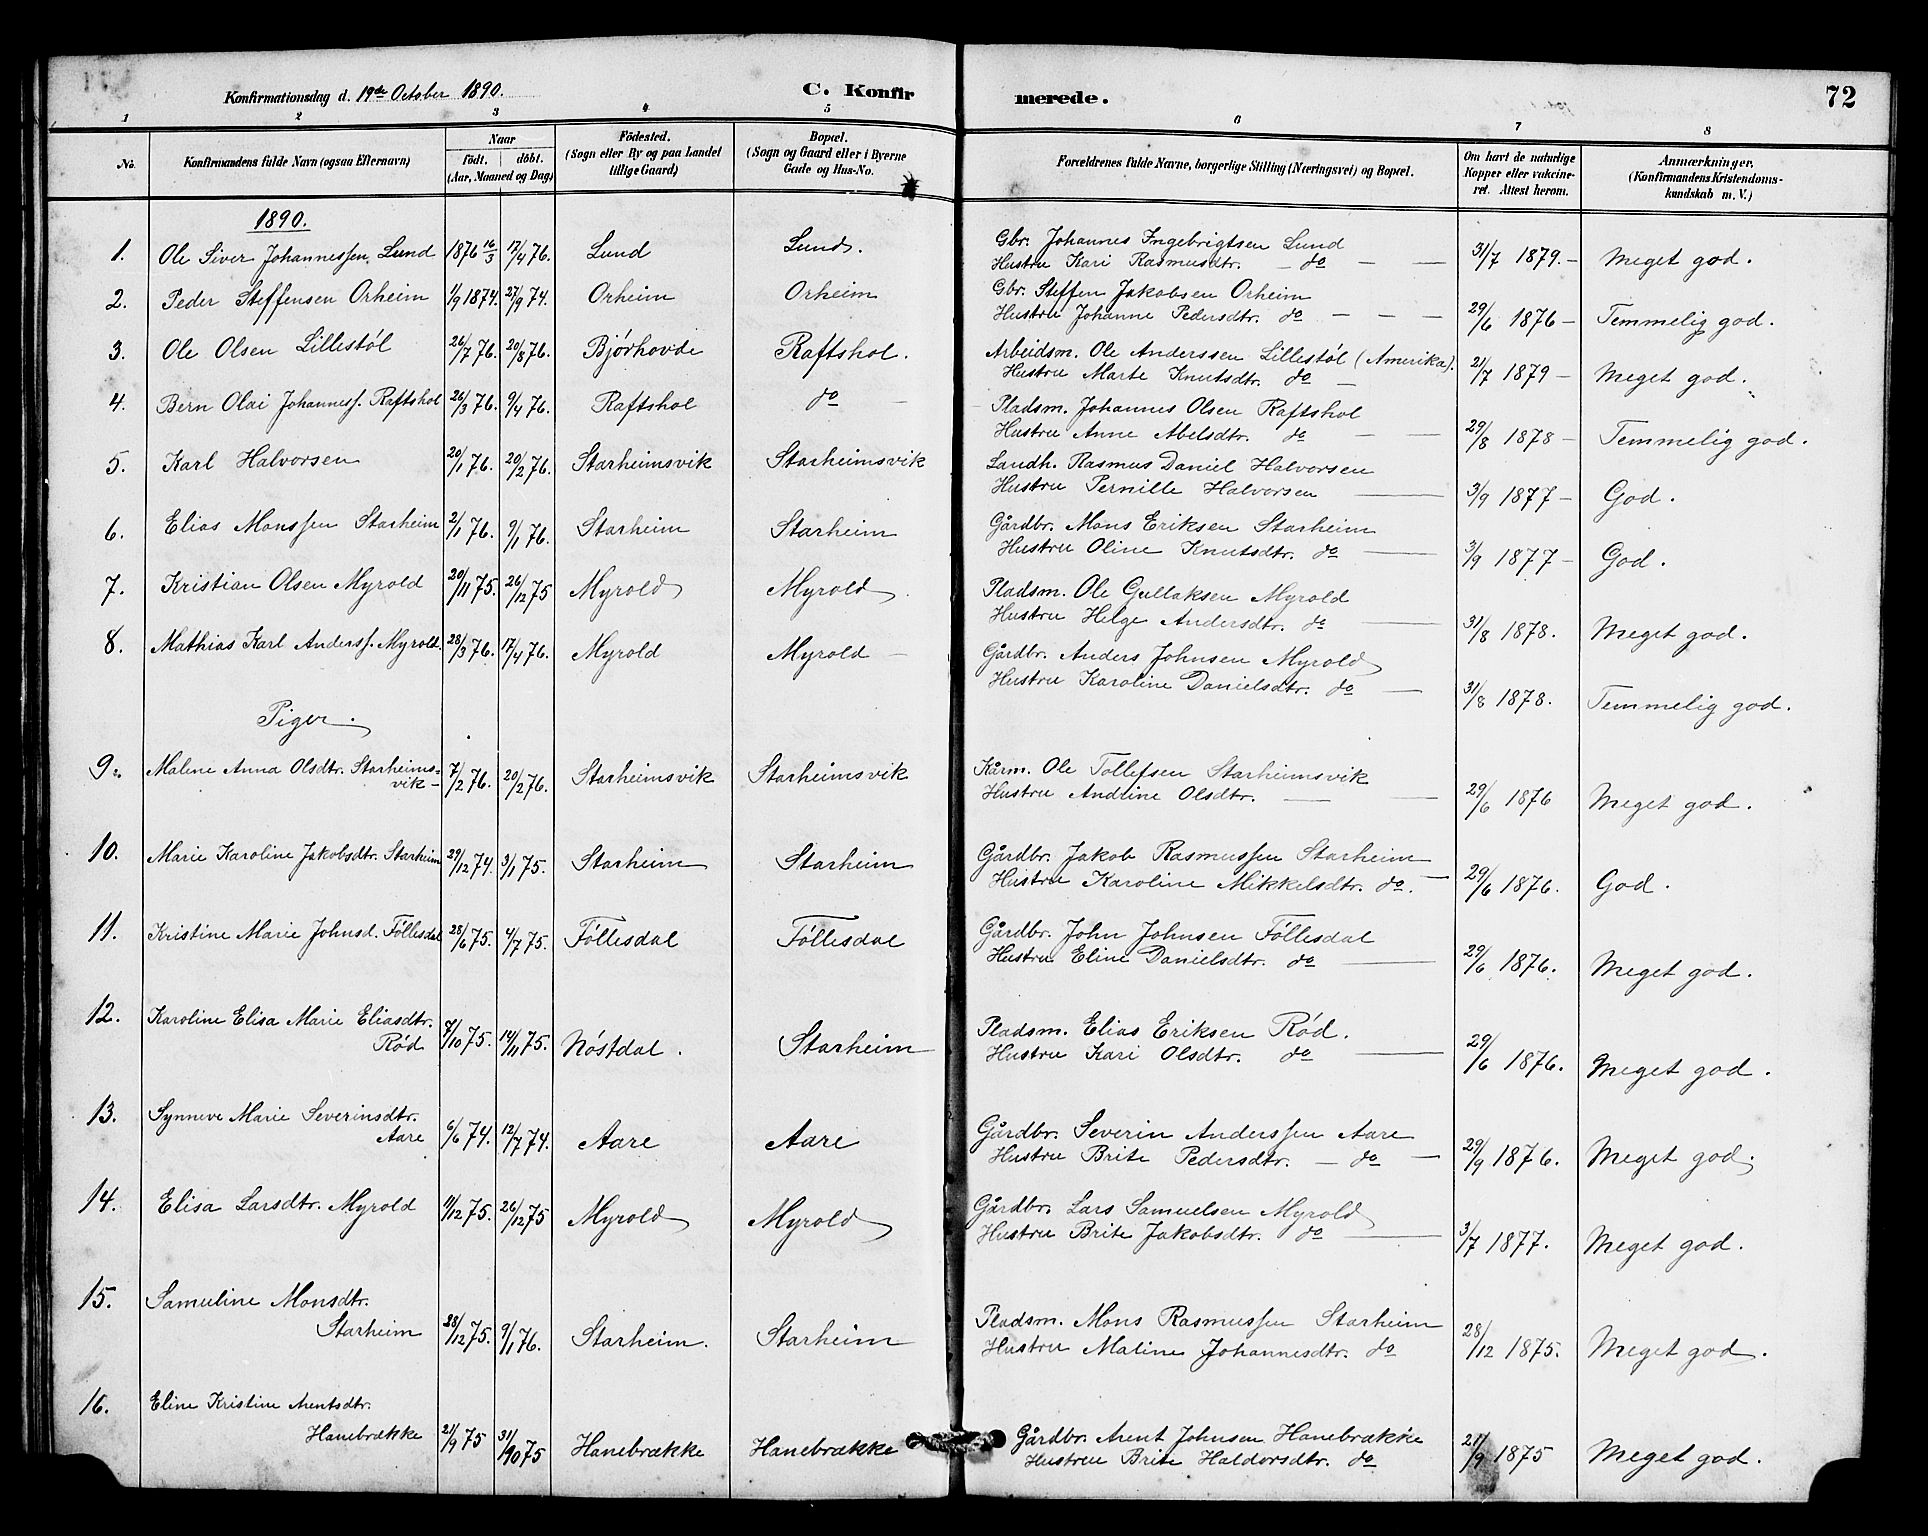 Konfirmationsdag d. 19de October 1890.
C. Konfir
merede.
72
1 2 3 4 5 6 7 8
No.
Konfirmandens fulde Navn (ogsaa Efternavn)
Naar
födt. döbt.
(Aar, Maaned og Dag)
Födested.
(Sogn eller By og paa Landet
tillige Gaard)
Bopæl.
(Sogn og Gaard eller i Byerne
Gade og Hus-No.
Forældrenes fulde Navne, borgerlige Stilling (Næringsvei) og Bopæl.
Om havt de naturlige
Kopper eller vakcine-
ret. Attest herom.
Anmærkninger.
(Konfirmandens Kristendoms-
kundskab m. V.)
1890.
1. Ole Siver Johannessen Lund 1876 16/3 17/4 76. Lund Lund. Gbr. Johannes Ingebrigtsen Lund
Hustru Kari Rasmusdtr. — do — — 31/7 1879. — Meget god.
2. Peder Steffensen Orheim 1/9 1874. 27/9 74. Orheim Orheim Gbr. Steffen Jakobsen Orheim
Hustru Johanne Pedersdtr. do — — — 29/6 1876 — Temmelig god.
3. Ole Olsen Lillestøl 26/7 76. 20/8 76. Bjørhovde Raftshol. Arbeidsm. Ole Anderssen Lillestøl (Amerika).
Hustru Marte Knutsdtr. do — 21/7 1879 — Meget god.
4. Bern Olai Johanness. Raftshol 26/3 76. 9/4 76. Raftshol do — Pladsm. Johannes Olsen Raftshol
Hustru Anne Abelsdtr. do — — 29/8 1878 — Temmelig god.
5. Karl Halvorsen 20/1 76. 20/2 76. Starheimsvik Starheimsvik Landh. Rasmus Daniel Halvorsen
Hustru Pernille Halvorsen — 3/9 1877 — God.
6. Elias Monssen Starheim 2/1 76. 9/1 76. Starheim Starheim Gårdbr. Mons Eriksen Starheim
Hustru Oline Knutsdtr. do — 3/9 1877 — God.
7. Kristian Olsen Myrold 20/11 75. 26/12 75 Myrold Myrold. Pladsm. Ole Gullaksen Myrold
Hustru Helge Andersdtr. do — 31/8 1878. Meget god.
8. Mathias Karl Anderss. Myrold. 28/3 76. 17/4 76. Myrold Myrold — Gårdbr. Anders Johnsen Myrold
Hustru Karoline Danielsdtr. do — 31/8 1878. Temmelig god.
Piger.
9. Malene Anna Olsdtr. Starheims=
vik — 7/2 76. 20/2 76. Starheimsvik Starheimsvik Kårm. Ole Tollefsen Starheimsvik
Hustru Andrine Olsdtr. — — 29/6 1876 Meget god.
10. Marie Karoline Jakobsdtr. Starheim 29/12 74. 3/1 75. Starheim Starheim Gårdbr. Jakob Rasmussen Starheim
Hustru Karoline Mikkelsdtr. do. — 29/6 1876. God.
11. Kristine Marie Johnsd. Föllesdal 28/6 75. 4/7 75. Föllesdal Föllesdal Gårdbr. John Johnsen Föllesdal
Hustru Eline Danielsdtr. do — 29/6 1876. Meget god.
12. Karoline Elisa Marie Eliasdtr.
Rød 7/10 75. 14/11 75. Nøstdal. Starheim Pladsm. Elias Eriksen Rød.
Hustru Kari Olsdtr. do — 29/6 1876. Meget god.
13. Synneve Marie Severinsdtr.
Aare 6/6 74. 12/7 74. Aare Aare Gårdbr. Severin Anderssen Aare
Hustru Brite Pedersdtr. — do — 29/9 1876. Meget god.
14. Elisa Larsdtr. Myrold 11/12 75. 26/12 75 Myrold Myrold Gårdbr. Lars Samuelsen Myrold
Hustru Brite Jakobsdtr. do — 3/7 1877. Meget god.
15. Samueline Monsdtr.
Starheim 28/12 75. 9/1 76. Starheim. Starheim Pladsm. Mons Rasmussen Starheim
Hustru Maline Johannesdtr. do 28/12 1875. Meget god.
16. Eline Kristine Arentsdtr.
Hanebrække 21/9 75 31/10 75 Hanebrække Hanebrække Gårdbr. Arent Johnsen Hanebrække
Hustru Brite Haldorsdtr. do 21/9 1875 Meget god.